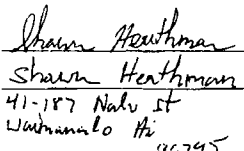 Shawn Heuthman
Shawn Heuthman
41-187 Nalu st
Waimanalo Hi
96795